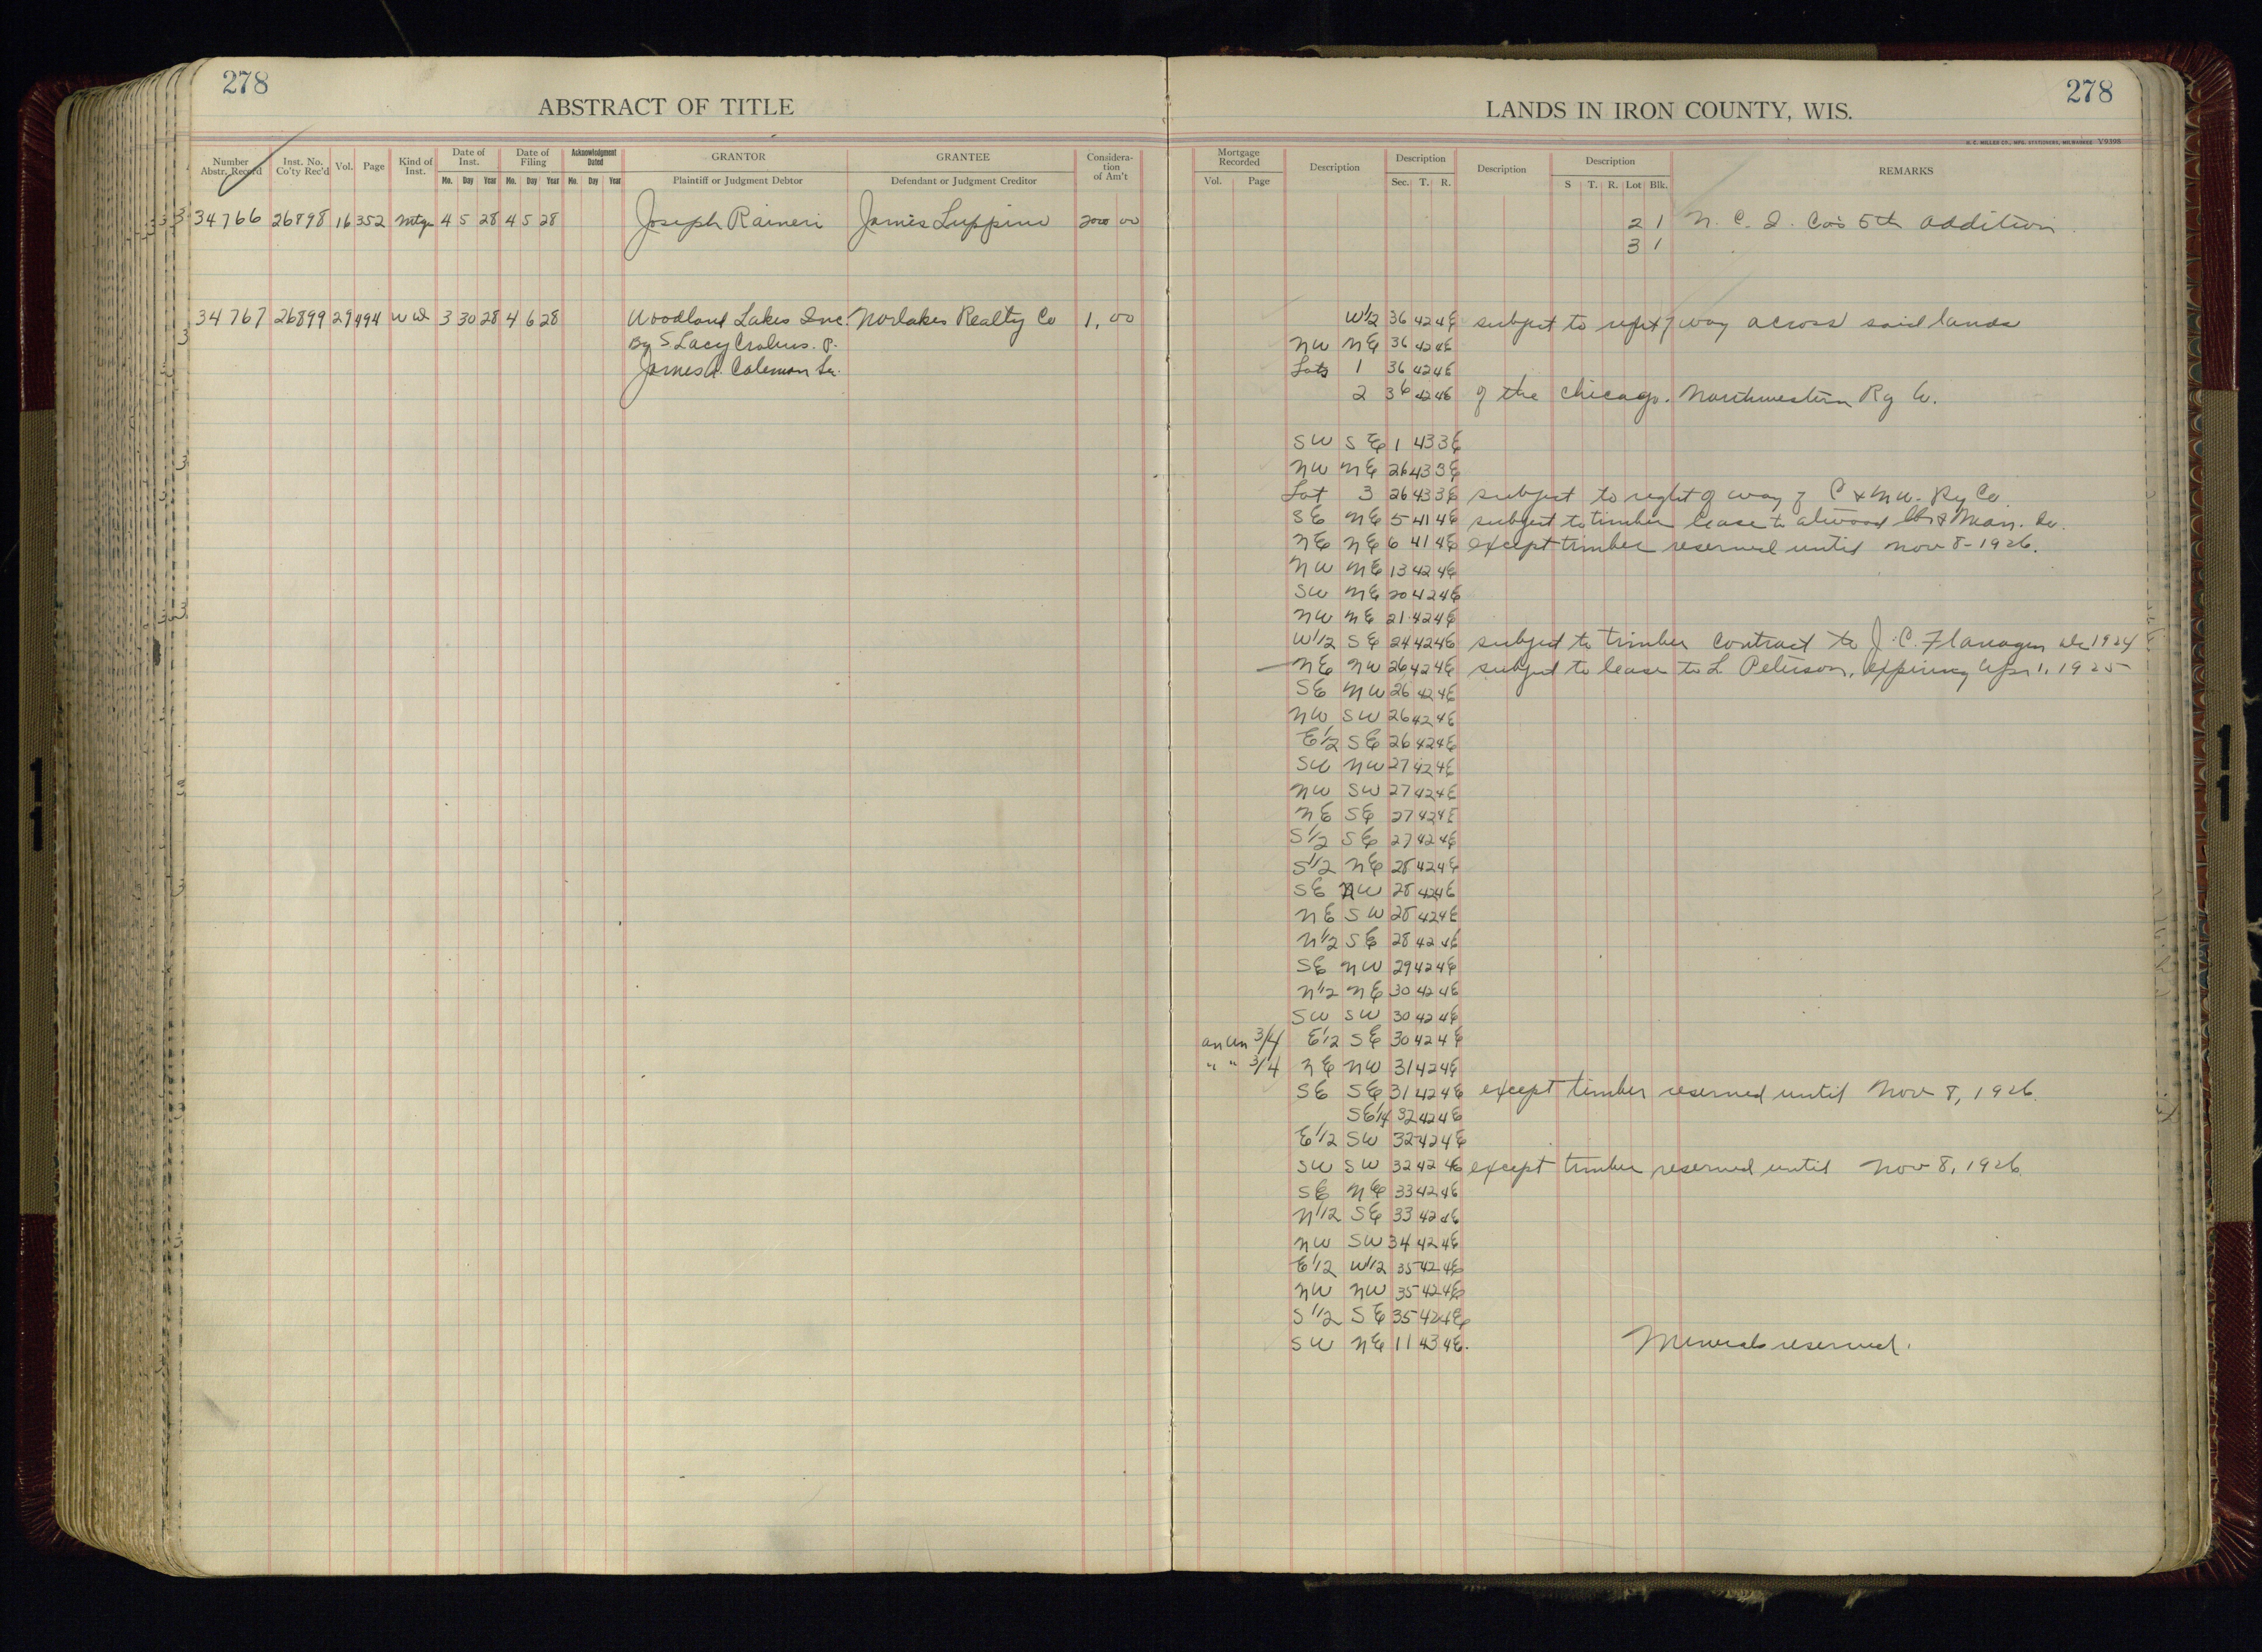 278
ABSTRACT OF TITLE
LANDS IN IRON COUNTY, WIS.
278
H. C. MILLER CO., MFG. STATIONERS, MILWAUKEE V9398
Number Abstr. Record Inst. No. Co'ty Rec'd Vol. Page Kind of Inst. Date of Inst. Mo. Day Year Date of Filing Mo. Day Year Acknowledgment Dated Mo. Day Year GRANTOR Plaintiff or Judgment Debtor GRANTEE Defendant or Judgment Creditor Considera-tion of Am't
Mortgage Recorded Vol. Page Description Description Sec. T. R. Description Description S T. R. Lot Blk. REMARKS
34766 26898 16 352 Mtge 4 5 28 4 5 28 Joseph Raineri James Luppino 2000 00 2 1 N. C. I. Co's 5th addition
3 1
34767 26899 29 494 W D 3 30 28 4 6 28 Woodland Lakes Inc. Norlakes Realty Co 1.00 W1/2 36 42 4E subject to right of way across said lands
By S Lacy Crolius. P. NW NE 36 42 4E
James A. Coleman Sec. Lots 1 36 42 4E
2 36 42 4E of the Chicago. Northwestern Ry Co.
SW SE 1 43 3E
NW NE 26 43 3E
Lot 3 26 43 3E subject to right of way of C & N W. Ry Co.
SE NE 5 41 4E subject to timber lease to Atwood Lbr & Man. Co.
NE NE 6 41 4E except timber reserved until Nov 8-1926.
NW NE 13 42 4E
SW NE 20 42 4E
NW NE 21 42 4E
W1/2 SE 24 42 4E subject to timber contract to J. C. Flanagan 1924
NE NW 26 42 4E subject to lease to L Peterson, expiring Apr 1, 1925
SE NW 26 42 4E
NW SW 26 42 4E
E1/2 SE 26 42 4E
SW NW 27 42 4E
NW SW 27 42 4E
NE SE 27 42 4E
S1/2 SE 27 42 4E
S1/2 NE 28 42 4E
SE NW 28 42 4E
NE SW 28 42 4E
N1/2 SE 28 42 4E
SE NW 29 42 4E
N1/2 NE 30 42 4E
SW SW 30 42 4E
an un 3/4 E1/2 SE 30 42 4E
" " 3/4 NE NW 31 42 4E
SE SE 31 42 4E except timber reserved until Nov 8, 1926.
SE1/4 32 42 4E
E1/2 SW 32 42 4E
SW SW 32 42 4E except timber reserved until Nov 8, 1926.
SE NE 33 42 4E
N1/2 SE 33 42 4E
NW SW 34 42 4E
E1/2 W1/2 35 42 4E
NW NW 35 42 4E
S1/2 SE 35 42 4E
SW NE 11 43 4E. Minerals reserved.